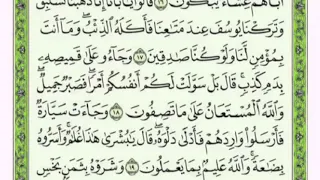 أَبَاهُمْ عِشَآءً يَبْكُونَ ١٦ قَالُوا۟ يَٰٓأَبَانَآ إِنَّا ذَهَبْنَا نَسْتَبِقُ
وَتَرَكْنَا يُوسُفَ عِندَ مَتَٰعِنَا فَأَكَلَهُ ٱلذِّئْبُ ۖ وَمَآ أَنتَ
بِمُؤْمِنٍ لَّنَا وَلَوْ كُنَّا صَٰدِقِينَ ١٧ وَجَآءُو عَلَىٰ قَمِيصِهِۦ
بِدَمٍ كَذِبٍ ۚ قَالَ بَلْ سَوَّلَتْ لَكُمْ أَنفُسُكُمْ أَمْرًا ۖ فَصَبْرٌ جَمِيلٌ ۖ
وَٱللَّهُ ٱلْمُسْتَعَانُ عَلَىٰ مَا تَصِفُونَ ١٨ وَجَآءَتْ سَيَّارَةٌ
فَأَرْسَلُوا۟ وَارِدَهُمْ فَأَدْلَىٰ دَلْوَهُۥ ۖ قَالَ يَٰبُشْرَىٰ هَٰذَا غُلَٰمٌ ۚ وَأَسَرُّوهُ
بِضَٰعَةً ۚ وَٱللَّهُ عَلِيمٌۢ بِمَا يَعْمَلُونَ ١٩ وَشَرَوْهُ بِثَمَنٍۭ بَخْسٍ